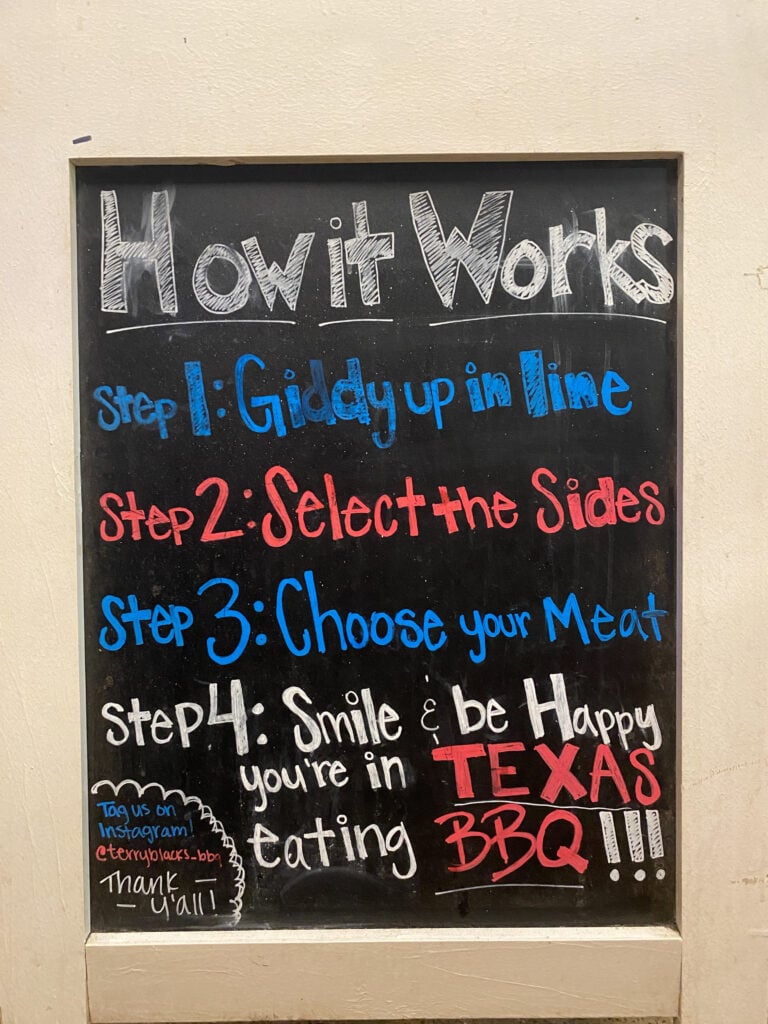 How it Works
Step 1: Giddy up in line
Step 2: Select the Sides
Step 3: Choose your Meat
Step 4: Smile & be Happy
you're in TEXAS
eating BBQ !!!
Tag us on
Instagram!
@terryblacks_bbq
Thank
y'all!